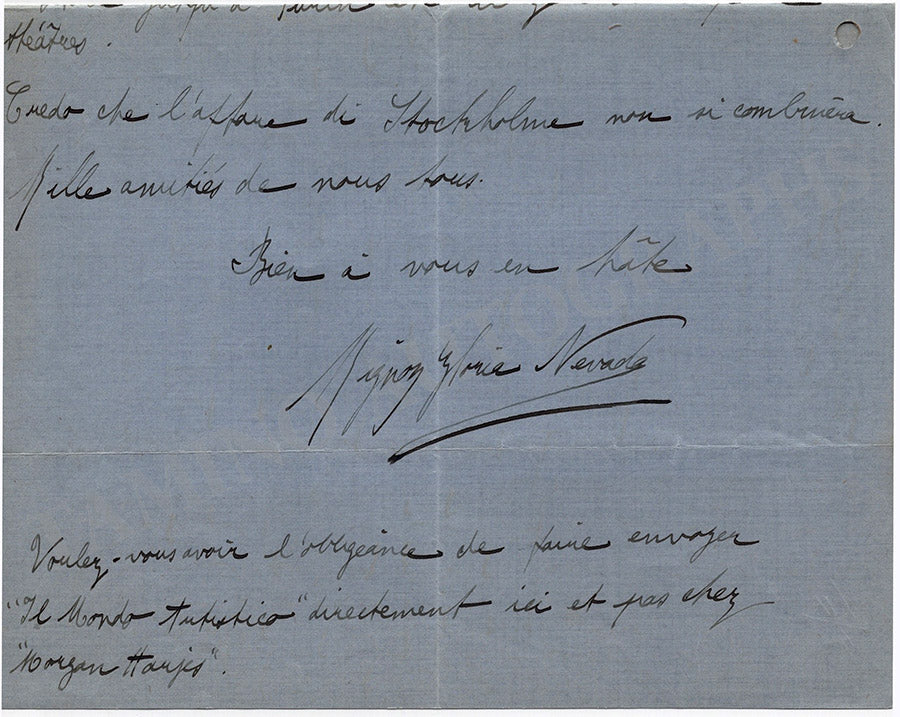 jusqu'à
théâtres.
Credo che l'affare di Stockholme non si combinera.
Mille amitiés de nous tous.
Bien à vous en hâte
Mignon Gloria Nevada
Voulez-vous avoir l'obligeance de faire envoyer
"Il Mondo Artistico" directement ici et pas chez
"Morgan Harjes".